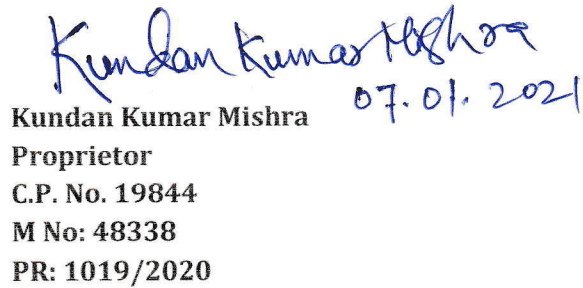 Kundan Kumar Mishra
07.01.2021
Kundan Kumar Mishra
Proprietor
C.P. No. 19844
M No: 48338
PR: 1019/2020